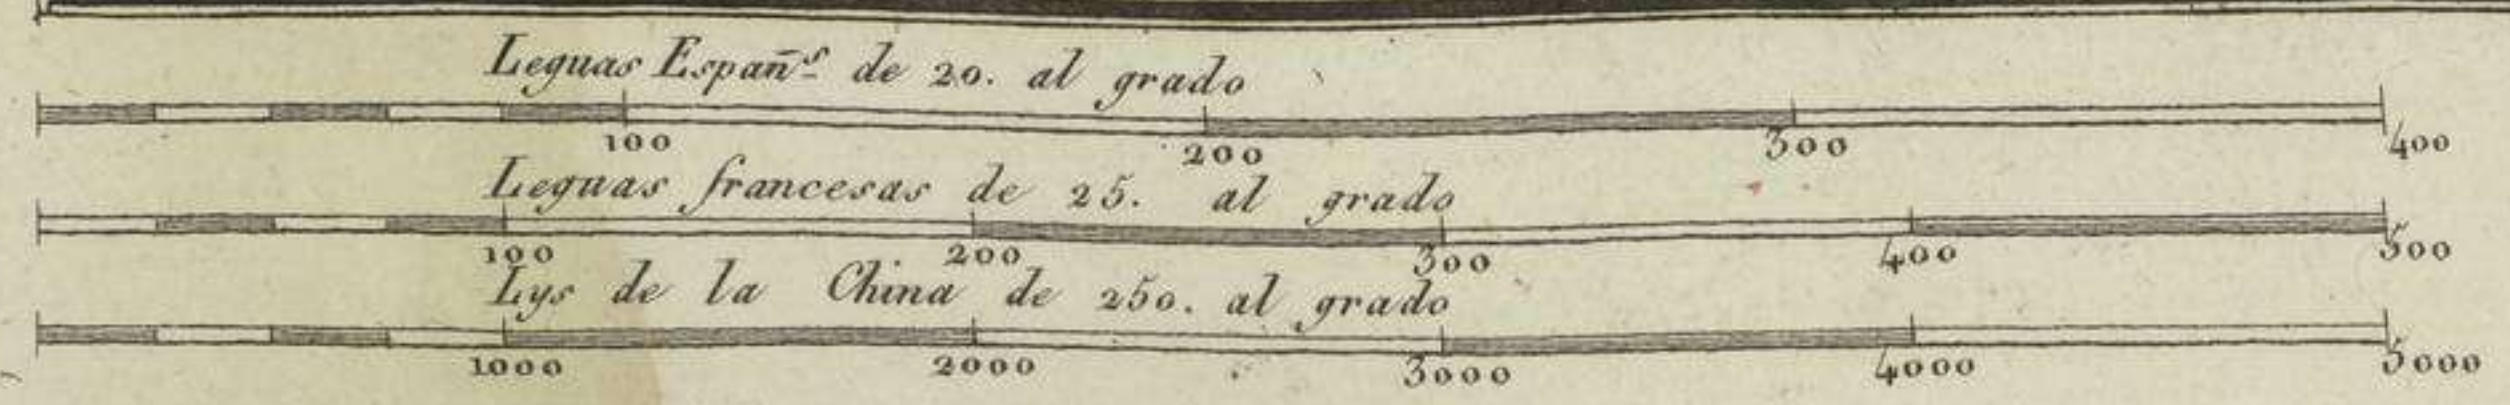 Leguas Españ.s de 20. al grado
100 200 300 400
Leguas francesas de 25. al grado
100 200 300 400 500
Lys de la China de 250. al grado
1000 2000 3000 4000 5000